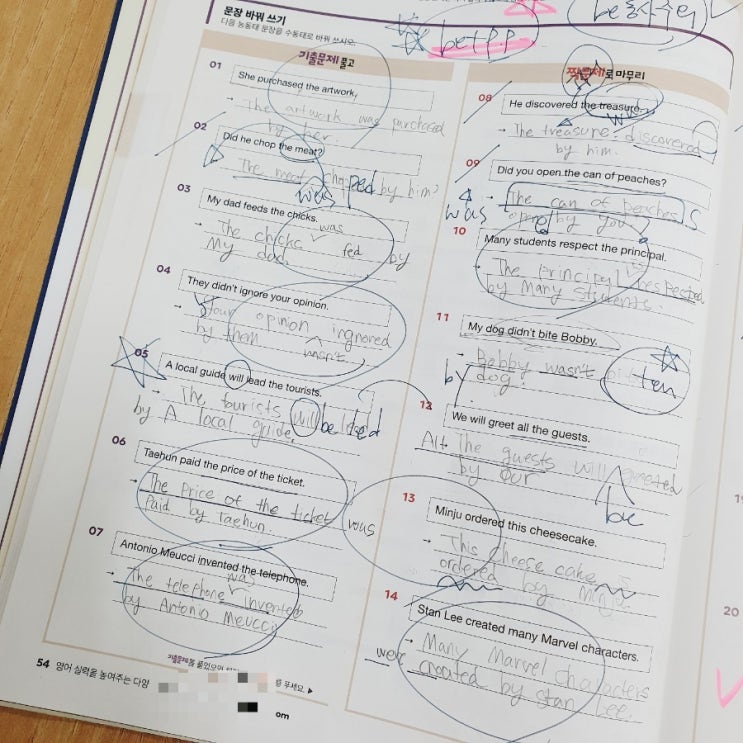 문장 바꿔 쓰기
다음 능동태 문장을 수동태로 바꿔 쓰시오.
be동사
be+P.P
기출문제 풀고
01
She purchased the artwork.
→ The artwork was purchased
by her.
02
Did he chop the meat?
The meat chopped by him?
was
03
My dad feeds the chicks.
was
→ The chicks fed by
My dad.
04
They didn't ignore your opinion.
→ Your opinion ingnored
by them
wasn't
05
A local guide will lead the tourists.
→ The tourists will be led
by A local guide.
06
Taehun paid the price of the ticket.
→ The price of the ticket was
Paid by Taehun.
07
Antonio Meucci invented the telephone.
was
→ The telephone invented
by Antonio Meucci
54 영어 실력을 높여주는 다양
om
로 마무리
08
He discovered the treasure.
→ The treasure discovered
by him.
09
Did you open the can of peaches?
→ The can of peaches
was
open by you
10
Many students respect the principal.
→ The principal is respected
by Many students.
11
My dog didn't bite Bobby.
→ Bobby wasn't
ten
by dog.
12
We will greet all the guests.
All The guests will greeted
by our
be
13
Minju ordered this cheesecake.
→ This cheese cake
ordered by Minju
14
Stan Lee created many Marvel characters.
→ Many Marvel characters
were created by Stan Lee.
20